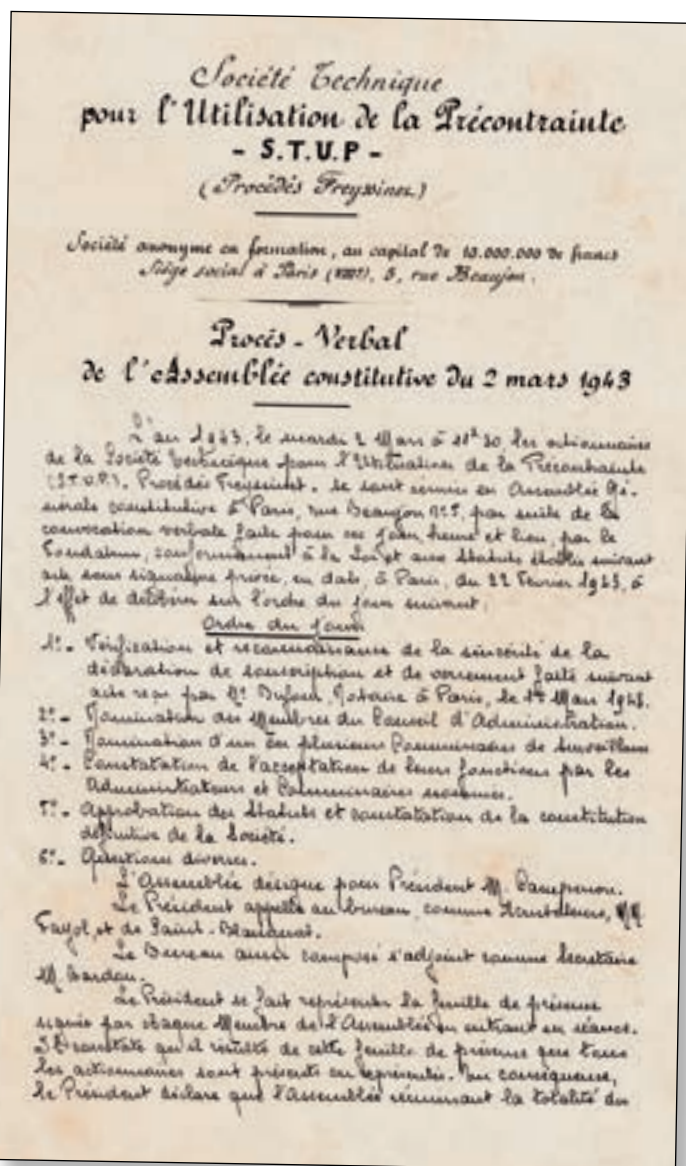 Société Technique
pour l'Utilisation de la Précontrainte
- S.T.U.P -
(Procédés Freyssinet.)
Société anonyme en formation, au capital de 10.000.000 de francs
Siège social à Paris (VIIIe), 5, rue Beaujon.
Procès-Verbal
de l'Assemblée constitutive du 2 mars 1943
L'an 1943, le mardi 2 Mars à 11h 30 les actionnaires
de la Société Technique pour l'Utilisation de la Précontrainte
(S.T.U.P.), Procédés Freyssinet. se sont réunis en Assemblée Gé-
nérale constitutive à Paris, rue Beaujon n°5, par suite de la
convocation verbale faite pour ces jour, heure et lieu, par le
Fondateur, conformément à la Loi et aux Statuts établis suivant
acte sous signature privée, en date, à Paris, du 22 Février 1943, à
l'effet de délibérer sur l'ordre du jour suivant,
Ordre du jour
1°- Vérification et reconnaissance de la sincérité de la
déclaration de souscription et de versement faite suivant
acte reçu par Me Notaire à Paris, le 1er Mars 1943.
2°- Nomination des Membres du Conseil d'Administration.
3°- Nomination d'un ou plusieurs Commissaires de Surveillance
4°- Constatation de l'acceptation de leurs fonctions par les
Administrateurs et Commissaires nommés.
5°- Approbation des Statuts et constatation de la constitution
définitive de la Société.
6°- Questions diverses.
L'Assemblée désigne pour Président M. Campenon.
Le Président appelle au bureau, comme Scrutateurs, MM
Fayol, et de Saint-
Le Bureau ainsi composé s'adjoint comme Secrétaire
M.
Le Président se fait représenter la feuille de présence
signée par chaque Membre de l'Assemblée en entrant en séance.
Il constate qu'il résulte de cette feuille de présence que tous
les actionnaires sont présents ou représentés. En conséquence,
le Président déclare que l'Assemblée réunissant la totalité du